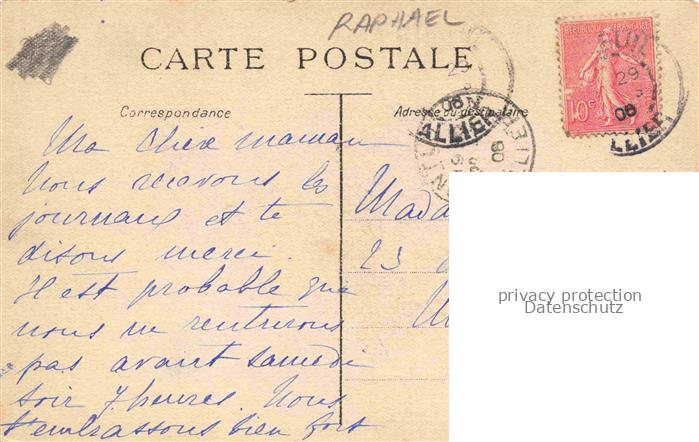 RAPHAEL
CARTE POSTALE
RÉPUBLIQUE FRANÇAISE
10c
29
06
ALLIER
ALLIER
Correspondance
Adresse du destinataire
Ma chère maman
Nous recevons les
journaux et te
disons merci.
Il est probable que
nous ne rentrerons
pas avant samedi
soir 7 heures. Nous
t'embrassons bien fort
Mada
23
privacy protection
Datenschutz